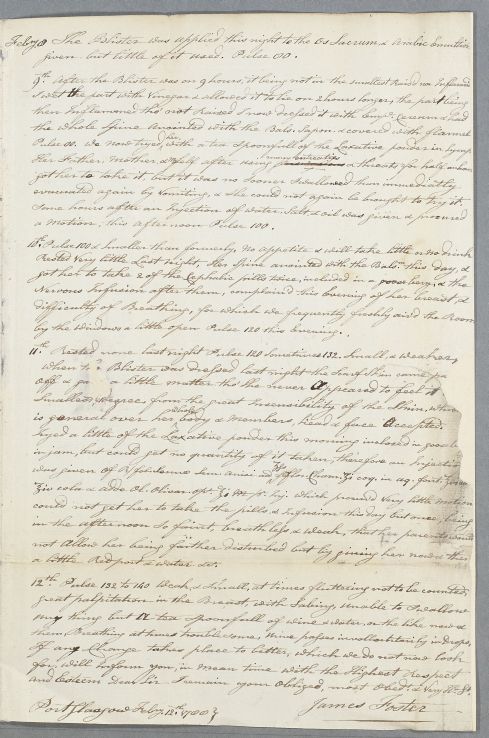 Feby 8 The Blister was applied this night to the Os Sacrum & Arabic Emultion
given but little of it used. Pulse 00.
9th After the Blister was on 9 hours, it being not in the smallest Raised nor Inflamed
I wet the part with Vinegar & allowed it to lie on 2 hours longer, the part being
then Inflammed tho not Raised I now dressed it with Cerum & had
the whole Spine Anointed with the Bals: Sapon: & covered with flannel
Pulse 00. we now tryed her with a tea Spoonfull of the Laxative powder in syrup
Her Father, Mother, & Self after using many entreatys & threats for half an hour
got her to take it, but it was no sooner Swallowed than immediatly
evacuated again by Vomiting, & she could not again be brought to try it
Some hours after an Injection of water, Salt & oil was given & procured
a Motion, this afternoon Pulse 100.
10th Pulse 100 & Smaller than formerly, No appetite & will take little or no drink
Rested Very little Last night, Her Spine anointed with the Balsm this day, &
got her to take 2 of the Cephalic pills twice, included in a goosberry, & the
Nervous Infusion after them, complaind this evening of her breast &
difficulty of Breathing, for which we frequently freshly air'd the Room
by the windows a little open Pulse 120 this Evening.
11th Rested none last night Pulse 120 Sometimes 132. Small & weak,
when the Blister was dressed last night the Scarf Skin came
off & a little matter tho' She never Appeared to feel it
Smallest degree, from the great Insensibility of the Skin, which
is general over her whole body & Members, head & face Accepted.
Tryed a little of the Laxative powder this morning inclosed in goosb
in jam, but could get no quantity of it taken, therefore an Injection
was given of Rx Semi Anisi Flor: Cham: coq. in aq. font.
cola & adde Ol. Olivar which procured Very little Motion
could not get her to take the pills & Infusion this day but once, being
in the afternoon So faint, breathless & Weak, that her parents would
not Allow her being further disturbed but by giving her now & then
a little Red port & water &c.
12th Pulse 132 to 140 Weak & Small, at times fluttering not to be counted,
great palpitation in the Breast, with Unable to Swallow
any thing but a tea Spoonfull of wine & water, or the like now &
then, Breathing at times troublesome, Urine passes involuntarily in drops,
If any Change takes place to better, which we do not now look
for, will inform you, in mean time with the Highest Respect
and Esteem Dear Sir I remain your Obliged, most Obedt & Very Hle St
James Foster
Port Glasgow Feby 12th